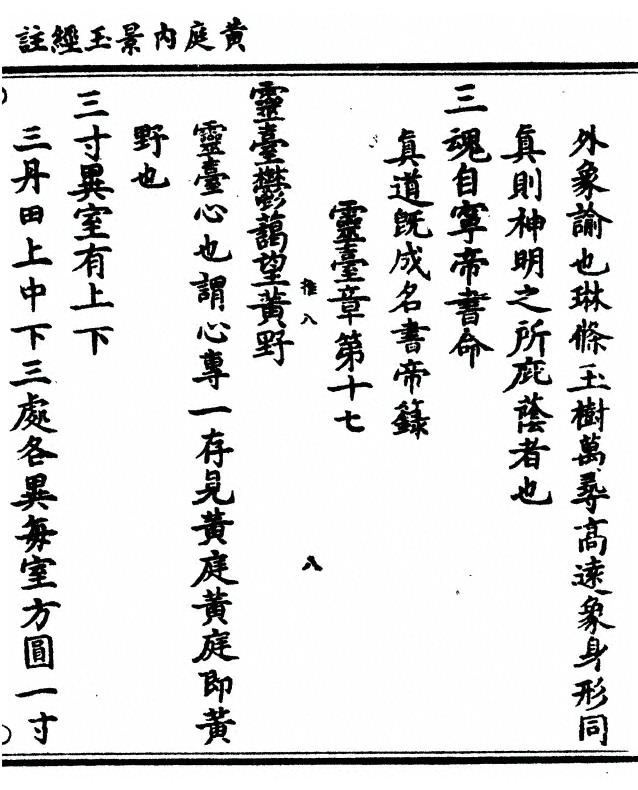 黄庭内景玉經註
外象諭也琳條玉樹萬尋高遠象身形同
眞則神明之所庇蔭者也
三魂自寧帝書命
眞道旣成名書帝籙
靈臺章第十七
推八
八
靈臺欝藹望黄野
靈臺心也謂心專一存見黄庭黄庭即黄
野也
三寸異室有上下
三丹田上中下三處各異每室方圓一寸